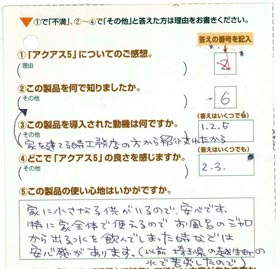 ▼①で「不満」、②~④で「その他」と答えた方は理由をお書きください。
答えの番号を記入
①「アクアス5」についてのご感想。
(理由
②この製品を何で知りましたか。
6
(その他
③この製品を導入された動機は何ですか。
(答えはいくつでも)
1.2.5
(その他
家を建てる時工務店の方から紹介されたから
④どこで「アクアス5」の良さを感じますか。
(答えはいくつでも)
2.3.
(その他
⑤この製品の使い心地はいかがですか。
家に小さな子供がいるので、安心です。
特に家全体で使えるのでお風呂のジャロ
から出る水を飲んでしまった時などは
安心感があります。(以前
水で苦労したので)